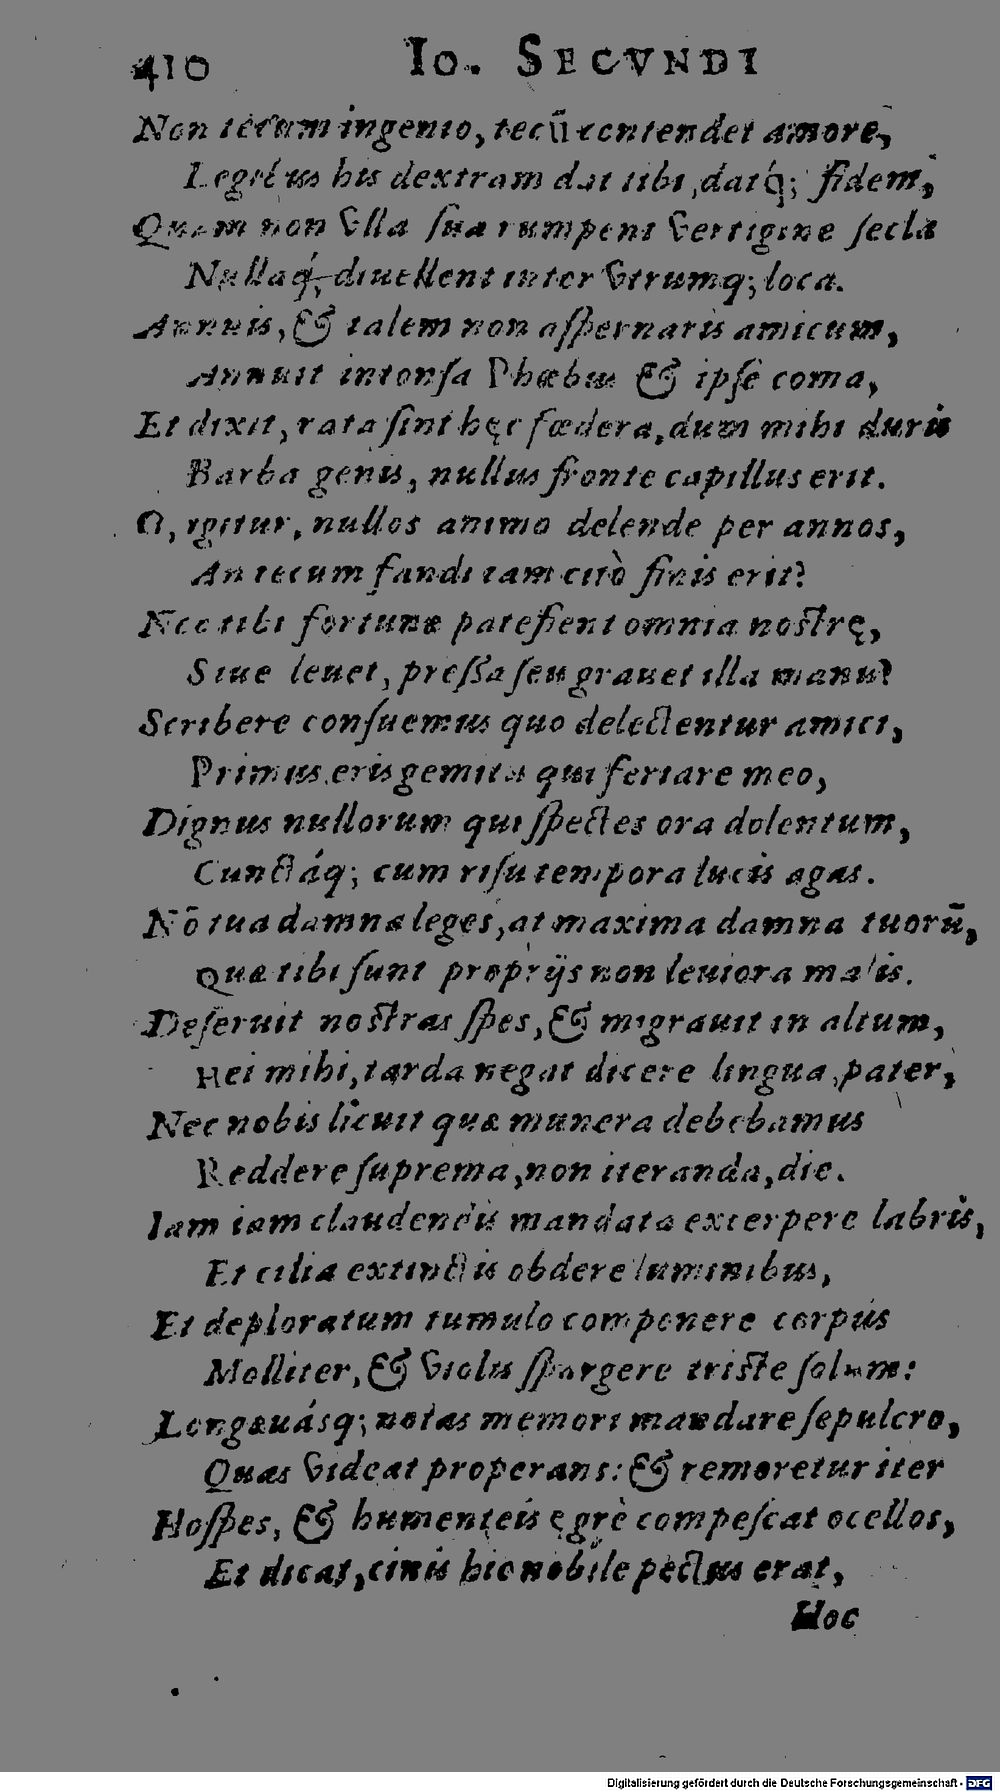 410 Io. SECVNDI
Non tecum ingenio, tecū contendet amore,
Legibus his dextram dat tibi, datq́; fidem,
Quam non vlla sua rumpent vertigine secla
Nullaq́; diuellent inter vtrumq; loca.
Annuis, & talem non aspernaris amicum,
Annuit intonsa Phœbus & ipse coma,
Et dixit, rata sint hęc fœdera, dum mihi duris
Barba genis, nullus fronte capillus erit.
O, igitur, nullos animo delende per annos,
An tecum fandi tam citò finis erit?
Nec tibi fortunæ patefient omnia nostrę,
Siue leuet, pressa seu grauet illa manu?
Scribere consuemus quo delectentur amici,
Primus eris gemitu qui feriare meo,
Dignus nullorum qui spectes ora dolentum,
Cunctáq; cum risu tempora lucis agas.
Nō tua damna leges, at maxima damna tuorū,
Quæ tibi sunt proprijs non leuiora malis.
Deseruit nostras spes, & migrauit in altum,
Hei mihi, tarda negat dicere lingua, pater,
Nec nobis licuit quæ munera debebamus
Reddere suprema, non iteranda, die.
Iam iam claudendis mandata excerpere labris,
Et cilia extinctis obdere luminibus,
Et deploratum tumulo componere corpus
Molliter, & violis spargere triste solum:
Longæuásq; notas memori mandare sepulcro,
Quas videat properans: & remoretur iter
Hospes, & humenteis ęgrè compescat ocellos,
Et dicat, cinis hic nobile pectus erat,
Hoc
Digitalisierung gefördert durch die Deutsche Forschungsgemeinschaft - DFG